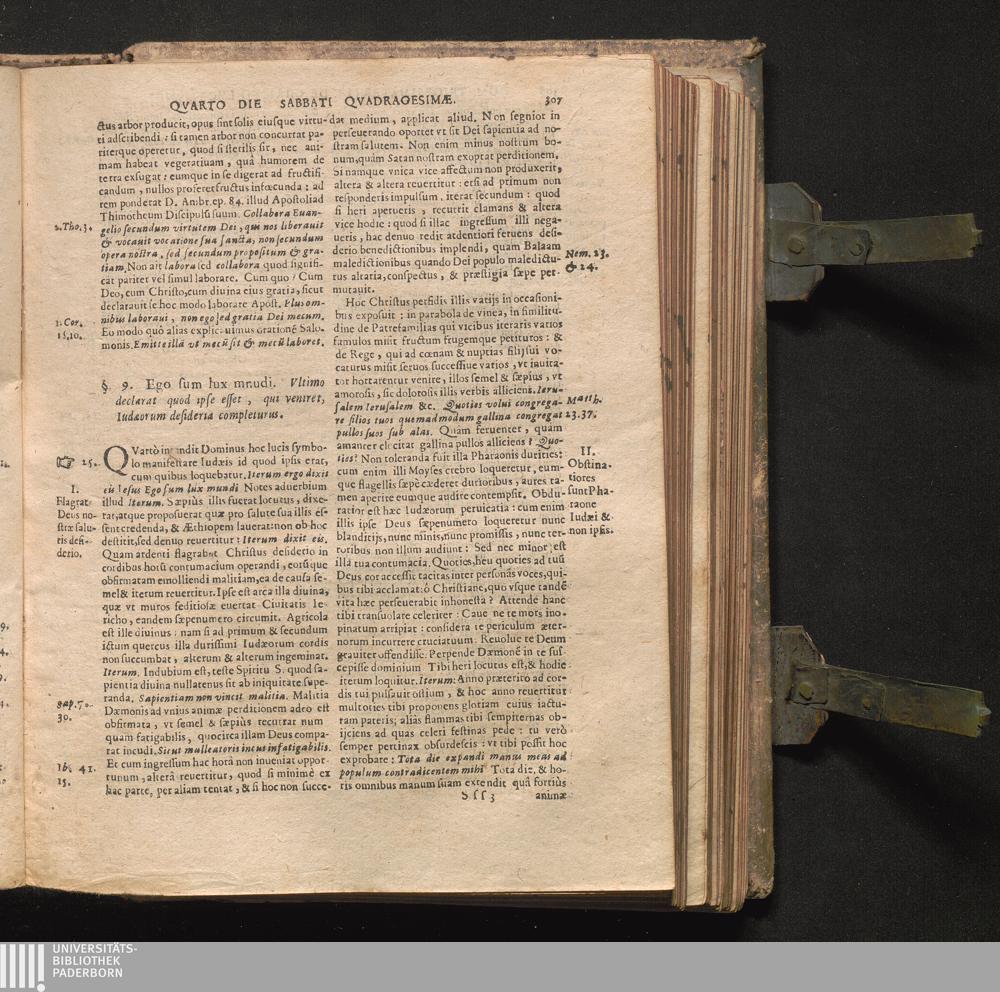 QVARTO DIE SABBATI QVADRAGESIMÆ. 307
ctus arbor producit, opus sint solis eiusque virtu-
ti adscribendi: si tamen arbor non concurrat pa-
riterque operetur, quod si sterilis sit, nec ani-
mam habeat vegetatiuam, quâ humorem de
terra exsugat: eumque in se digerat ad fructifi-
candum, nullos proferet fructus infœcunda: ad
rem ponderat D. Ambr. ep. 84. illud Apostoli ad
Thimotheum Discipulū suum. Collabora Euan-
2. Tho. 3. gelio secundum virtutem Dei, qui nos liberauit
& vocauit vocatione sua sancta, non secundum
opera nostra, sed secundum propositum & gra-
tiam. Non ait labora sed collabora quod signifi-
cat pariter vel simul laborare. Cum quo? Cum
Deo, cum Christo, cum diuina eius gratia, sicut
declarauit se hoc modo laborare Apost. Plus om-
1. Cor. nibus laboraui, non ego sed gratia Dei mecum.
15. 10. Eo modo quô alias explicuimus orationē Salo-
monis. Emitte illā vt mecū sit & mecū laboret.
§. 9. Ego sum lux mnudi. Vltimo
declarat quod ipse esset, qui veniret,
Iudæorum desideria completurus.
☞ 25. QVartò intendit Dominus hoc lucis symbo-
lo manifestare Iudæis id quod ipsis erat,
cum quibus loquebatur. Iterum ergo dixit
eis Iesus Ego sum lux mundi Notes aduerbium
I. illud Iterum. Sæpiùs illis fuerat locutus, dixe-
Flagrat rat, atque proposuerat quæ pro salute sua illis es-
Deus no- sent credenda, & Æthiopem lauerat: non ob hoc
stræ salu- destitit, sed denuo reuertitur: Iterum dixit eis.
tis desi- Quam ardenti flagrabat Christus desiderio in
derio. cordibus horū contumacium operandi, eorūque
obfirmatam emolliendi malitiam, ea de causa se-
mel & iterum reuertitur. Ipse est arca illa diuina,
quæ vt muros seditiosæ euertat Ciuitatis Ie-
richo, eandem sæpenumero circumit. Agricola
est ille diuinus: nam si ad primum & secundum
ictum quercus illa durissimi Iudæorum cordis
non succumbat, alterum & alterum ingeminat.
Iterum. Indubium est, teste Spiritu S. quod sa-
pientia diuina nullatenus sit ab iniquitate supe-
sap. 7. randa. Sapientiam non vincit malitia. Malitia
30. Dæmonis ad vnius animæ perditionem adeo est
obfirmata, vt semel & sæpiùs recurrat num
quam fatigabilis, quocirca illam Deus compa-
rat incudi. Sicut malleatoris incus infatigabilis.
Ib. 41. Et cum ingressum hac horâ non inueniat oppor-
15. tunum, alterâ reuertitur, quod si minimè ex
hac parte, per aliam tentat, & si hoc non succe-
dat medium, applicat aliud. Non segnior in
perseuerando oportet vt sit Dei sapientia ad no-
stram salutem. Non enim minus nostrum bo-
num, quàm Satan nostram exoptat perditionem.
Si namque vnica vice affectum non produxerit,
altera & altera reuertitur: etsi ad primum non
responderis impulsum, iterat secundum: quod
si heri aperueris, recurrit clamans & altera
vice hodie: quod si illac ingressum illi nega-
ueris, hac denuo redit ardentiori feruens desi-
derio benedictionibus implendi, quam Balaam Nem. 23.
maledictionibus quando Dei populo maledictu- & 24.
rus altaria, conspectus, & præstigia sæpe per-
mutauit.
Hoc Christus perfidis illis varijs in occasioni-
bus exposuit: in parabola de vinea, in similitu-
dine de Patrefamilias qui vicibus iteratis varios
famulos misit fructum frugemque petituros: &
de Rege, qui ad cœnam & nuptias filij sui vo-
caturus misit seruos successiue varios, vt inuita-
tor hortarentur venire, illos semel & sæpius, vt
amorosis, sic dolorosis illis verbis alliciens. Ieru-
salem Ierusalem &c. Quoties volui congrega- Matth.
re filios tuos quemadmodum gallina congregat 23. 37.
pullos suos sub alas. Quàm feruenter, quàm
amanter clocitat gallina pullos alliciens? Quo-
ties? Non toleranda fuit illa Pharaonis durities: II.
cum enim illi Moyses crebro loqueretur, eum- Obstina-
que flagellis sæpè cæderet durioribus, aures ta- tiores
men aperire eumque audire contempsit. Obdu- sunt Pha-
ratior est hæc Iudæorum peruicatia: cum enim raone
illis ipse Deus sæpenumero loqueretur nunc Iudæi &
blanditijs, nunc minis, nunc promissis, nunc ter- non ipsis.
roribus non illum audiunt: Sed nec minor est
illa tua contumacia. Quoties, heu quoties ad tuū
Deus cor accessit tacitas inter personās voces, qui-
bus tibi acclamat: ô Christiane, quo vsque tandē
vita hæc perseuerabit inhonesta? Attende hanc
tibi transuolare celeriter: Caue ne te mors ino-
pinatum arripiat: considera te periculum æter-
norum incurrere cruciatuum. Reuolue te Deum
grauiter offendisse. Perpende Dæmonē in te sus-
cepisse dominium Tibi heri locutus est, & hodie
iterum loquitur. Iterum: Anno præterito ad cor-
dis tui pulsauit ostium, & hoc anno reuertitur
multoties tibi proponens gloriam cuius iactu-
ram pateris; aliàs flammas tibi sempiternas ob-
ijciens ad quas celeri festinas pede: tu verò
semper pertinax obsurdescis: vt tibi possit hoc
exprobare: Tota die expandi manus meas ad
populum contradicentem mihi Tota die, & ho-
ris omnibus manum suam extendit quâ fortiùs
Sss 3 animæ
UNIVERSITÄTS-
BIBLIOTHEK
PADERBORN